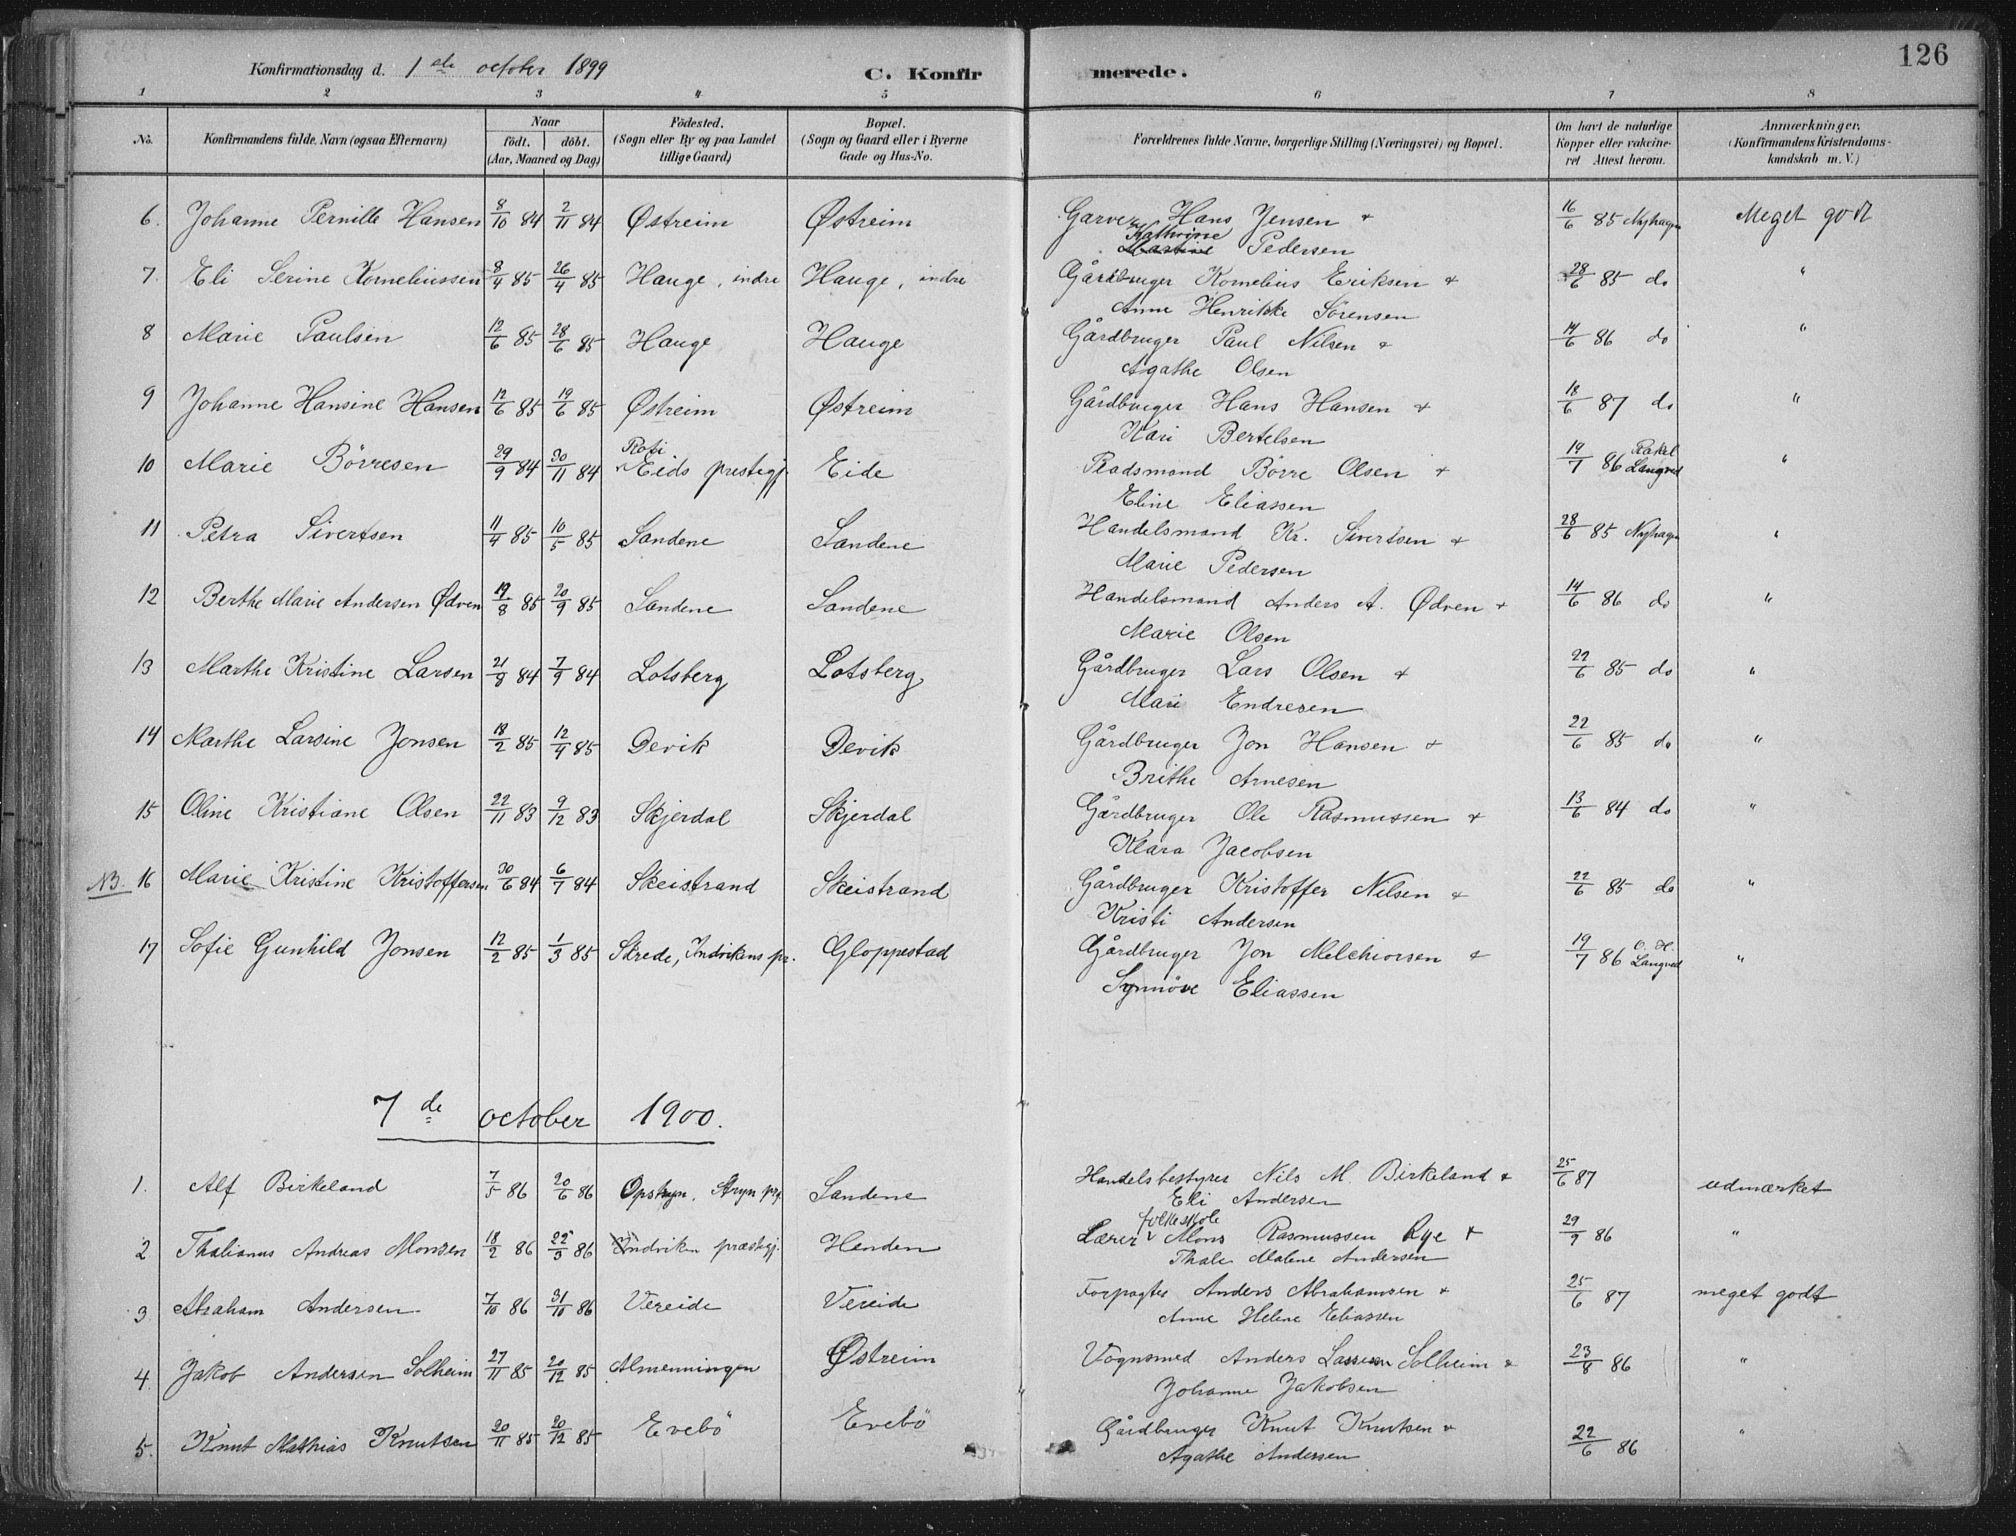 126
Konfirmationsdag d. 1ste october 1899 C. Konfirmerede.
1 2 3 4 5 6 7 8
No. Konfirmandens fulde Navn (ogsaa Efternavn) Naar födt. döbt. (Aar, Maaned og Dag) Födested. (Sogn eller By og paa Landet tillige Gaard) Bopæl. (Sogn og Gaard eller i Byerne Gade og Hus-No. Forældrenes fulde Navne, borgerlige Stilling (Næringsvei) og Bopæl. Om havt de naturlige Kopper eller vakcineret Attest herom. Anmærkninger. (Konfirmandens Kristendomskundskab m. V.)
6. Johanne Pernille Hansen 8/10 84 2/11 84 Østreim Østreim Garver Hans Jensen + 16/6 85 Nyhagen Meget godt
Kathrine
Pedersen
7. Eli Serine Korneliussen 8/4 85 26/4 85 Hauge, indre Hauge, indre Gårdbruger Kornelius Eriksen + 28/6 85 do "
Anne Henrikke Sørensen
8 Marie Paulsen 12/6 85 28/6 85 Hauge Hauge Gårdbruger Paul Nilsen + 14/6 86 do "
Agathe Olsen
9 Johanne Hansine Hansen 12/6 85 19/6 85 Østreim Østreim Gårdbruger Hans Hansen + 18/6 87 do "
Kari Bertelsen
10 Marie Börresen 29/9 84 30/11 84 Eids prestegj. Eide Pladsmand Börre Olsen + 19/7 86 Rakel Langved "
Eline Eliassen
11 Petra Sivertsen 11/4 85 10/5 85 Sandene Sandene Handelsmand Kr. Sivertsen + 28/6 85 Nyhagen "
Marie Pedersen
12 Berthe Marie Andersen Ødven 19/8 85 20/9 85 Sandene Sandene Handelsmand Anders A. Ødven + 14/6 86 do "
Marie Olsen
13 Marthe Kristine Larsen 21/8 84 7/9 84 Lotsberg Lotsberg Gårdbruger Lars Olsen + 22/6 85 do "
Mari Endresen
14 Marthe Larsine Jonsen 18/2 85 12/4 85 Devik Devik Gårdbruger Jon Hansen + 22/6 85 do "
Brithe Arnesen
15 Oline Kristiane Olsen 22/11 83 9/12 83 Skjerdal Skjerdal Gårdbruger Ole Rasmussen + 13/6 84 do "
Klara Jacobsen
NB. 16 Marie Kristine Kristoffersen 30/6 84 6/7 84 Skeistrand Skeistrand Gårdbruger Kristoffer Nilsen + 22/6 85 do "
Kristi Andersen
17 Sofie Gunhild Jonsen 12/2 85 1/3 85 Skrede, Indvikens pr. Gloppestad Gårdbruger Jon Melchiorsen + 19/7 86 Langved "
Synnöve Eliassen
7de october 1900.
1. Alf Birkeland 7/5 86 20/6 86 Opstryn, Stryn prg Sandene Handelsbestyrer Nils M. Birkeland + 25/6 87 udmærket
Eli Andersen
folkeskole
2 Thalianus Andreas Monsen 18/2 86 22/3 86 Indviken præstegj. Henden Lærer v Mons Rasmussen Rye + 29/9 86 "
Thale Malene Andersen
3 Abraham Andersen 7/10 86 31/10 86 Vereide Vereide Forpagter Anders Abrahamsen + 25/6 87 meget godt
Anne Helene Eliassen
4. Jakob Andersen Solheim 27/11 85 20/12 85 Almenningen Østreim Vognsmed Anders Larsen Solheim + 23/8 86 "
Johanne Jakobsen
5. Knut Mathias Knutsen 20/11 85 20/12 85 Evebö Evebö Gårdbruger Knut Knutsen + 22/6 86 "
Agathe Andersen